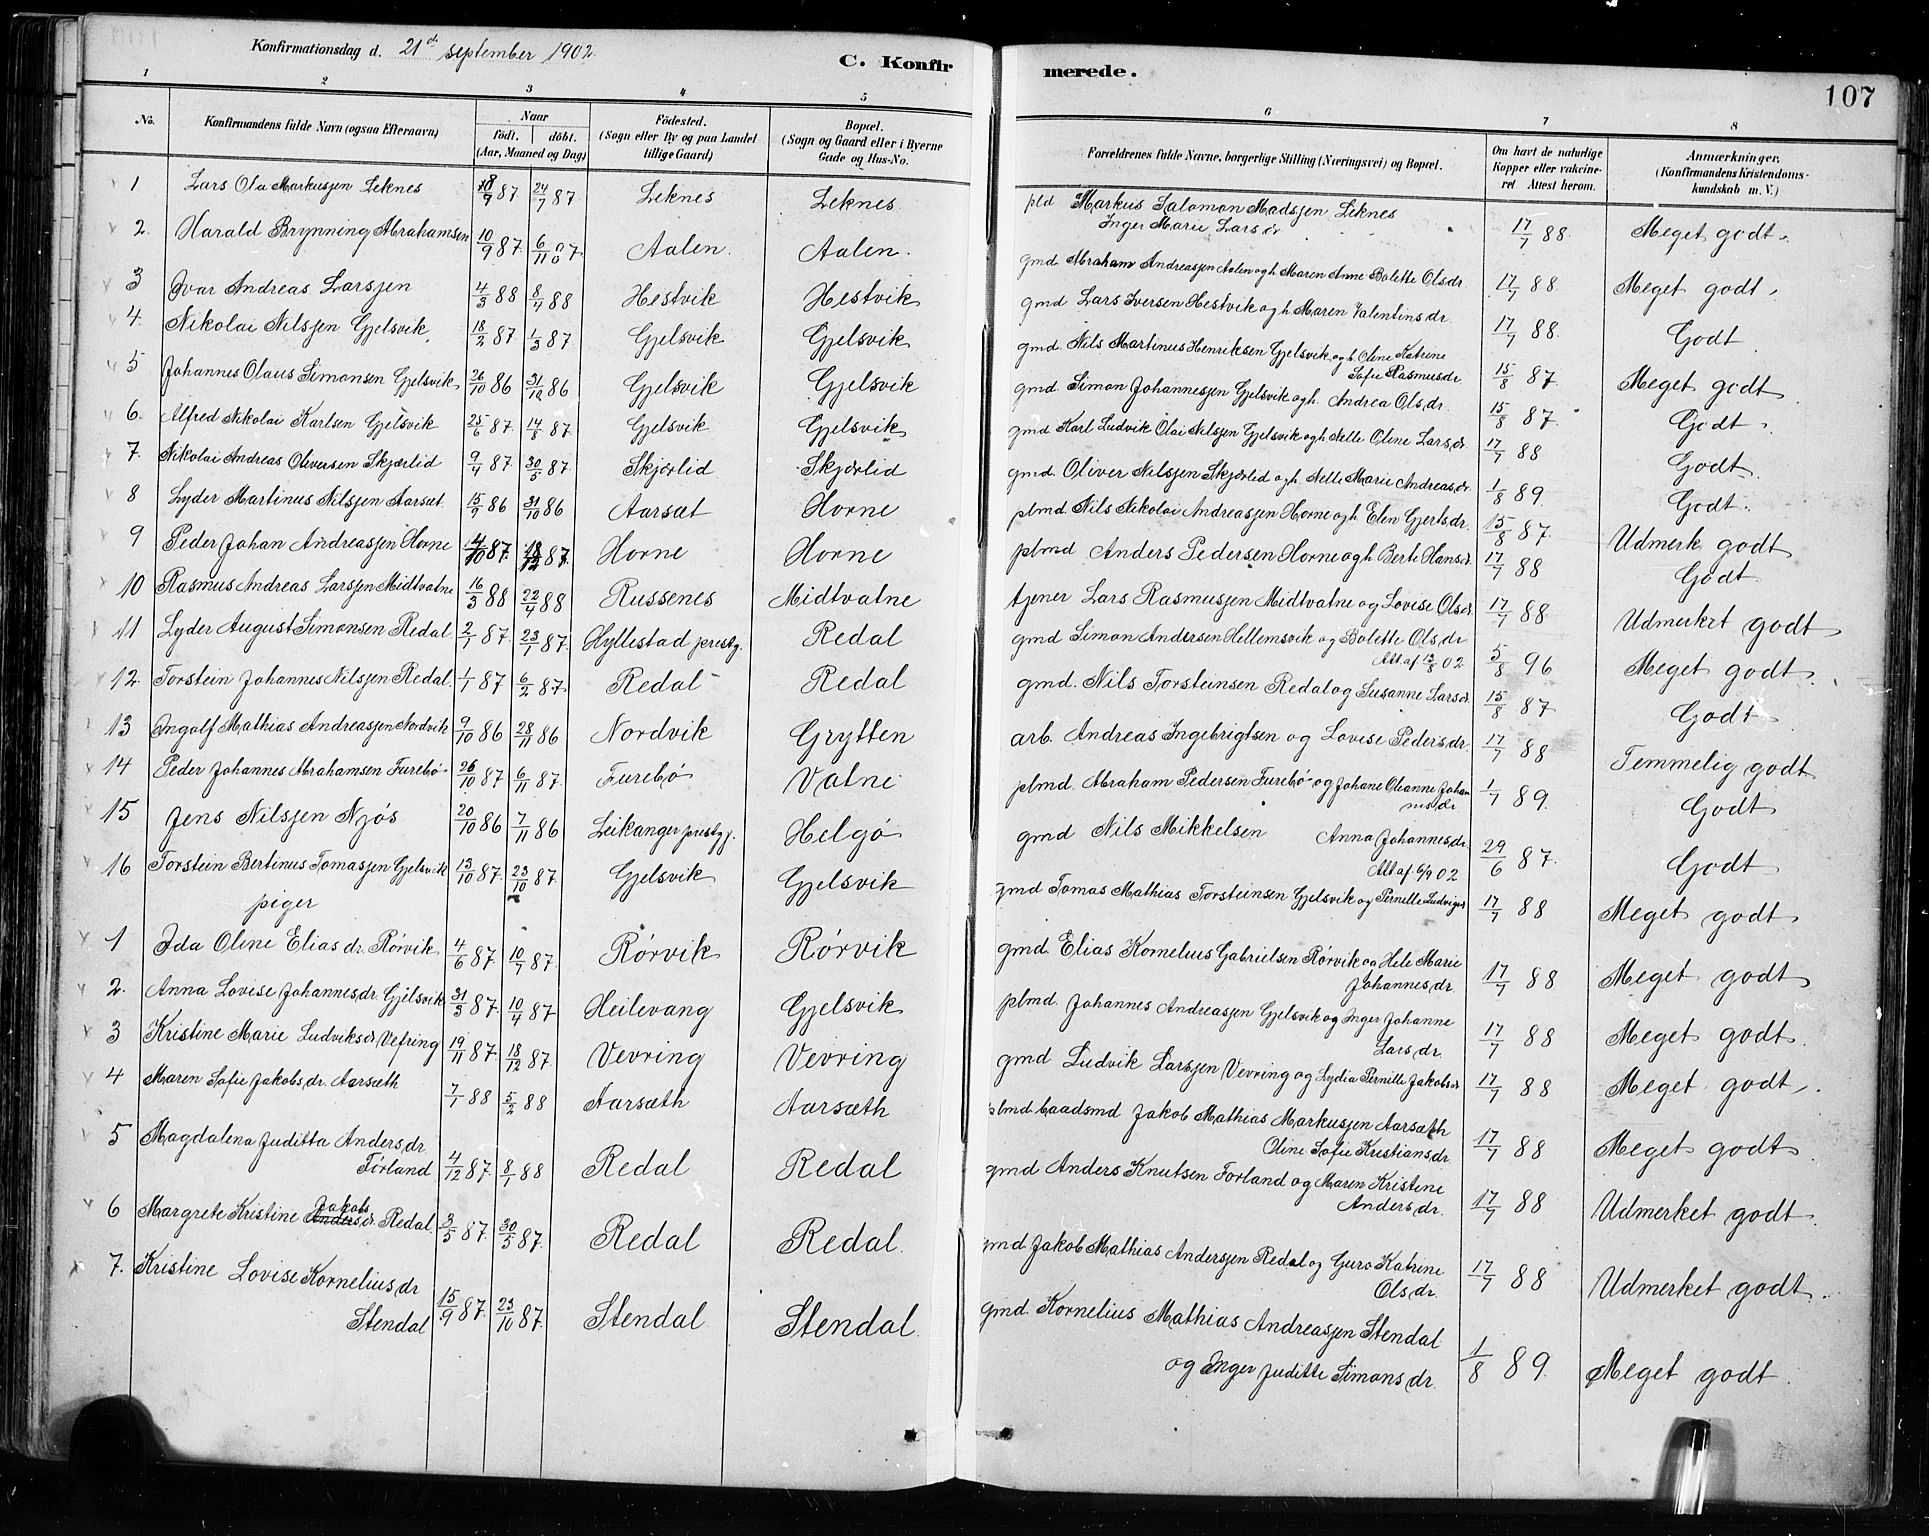 Konfirmationsdag d. 21de september 1902.
C. Konfirmerede.
107
1 2 3 4 5 6 7 8
No.
Konfirmandens fulde Navn (ogsaa Efternavn)
Naar
födt. döbt.
(Aar, Maaned og Dag)
Födested.
(Sogn eller By og paa Landet
tillige Gaard)
Bopæl.
(Sogn og Gaard eller i Byerne
Gade og Hus-No.
Forældrenes fulde Navne, borgerlige Stilling (Næringsvei) og Bopæl.
Om havt de naturlige
Kopper eller vakcineret
Attest herom.
Anmærkninger.
(Konfirmandens Kristendomskundskab
m. V.)
1 Lars Ola Markusjen Leknes 18/9 87 24/7 87 Leknes Leknes pld Markus Salomon Madsjen Leknes
Inger Marie Larsdr 17/7 88. Meget godt.
2. Harald Brynning Abrahamsen 10/9 87 6/11 87 Aalen. Aalen. gmd. Abraham Andreasjen Aalen og h. Maren Anne Bolette Olsdr. 17/7 88. Meget godt.
3 Ivar Andreas Larsjen 4/3 88 8/4 88 Hestvik Hestvik gmd Lars Iversen Hestvik og h. Maren Valentinsdr. 17/7 88. Godt
4. Nikolai Nilsjen Gjelsvik. 18/2 87 1/3 87 Gjelsvik Gjelsvik gmd. Nils Martinus Henriksen Gjelsvik og h. Oline Katrine
Sofie Rasmusdr 15/8 87 Meget godt
5 Johannes Olaus Simonsen Gjelsvik 26/10 86 31/10 86 Gjelsvik Gjelsvik gmd Simon Johannesjen Gjelsvik og h. Andrea Olsdr. 15/8 87 Godt.
6. Alfred Nikolai Karlsen Gjelsvik 25/6 87 14/8 87 Gjelsvik Gjelsvik gmd Karl Ludvik Olai Nilsjen Gjelsvik og h Nelle Oline Larsdr 17/7 88 Godt
7. Nikolai Andreas Oliversen Skjærlid 9/4 87 30/5 87 Skjærlid Skjærlid gmd. Oliver Nilsjen Skjærlid og h. Nelle Marie Andreasdr. 1/8 89. Godt.
8 Lyder Martinus Nilsjen Aarsæt 15/9 86 31/10 86 Aarsæt Horne plmd. Nils Nikolai Andreasjen Horne og h. Elen Gjertsdr. 15/8 87 Udmerk godt
9 Peder Johan Andreasjen Horne 14/10 87. 18/12 87. Horne Horne plmd Anders Pedersen Horne og h. Berte Hansdr. 17/7 88 Godt
10 Rasmus Andreas Larsjen Midtvatne 16/3 88 22/4 88 Russenes Midtvatne tjener Lars Rasmusjen Midtvatne og Lovise Olsdr 17/7 88 Udmerket godt
11 Lyder August Simonsen Redal 2/1 87 23/1 87 Hyllestad prestg. Redal gmd Simon Andersen Hellemsvik og Bolette Olsdr
Att af 13/8 02 5/8 96 Meget godt.
12. Torstein Johannes Nilsjen Redal. 1/1 87 6/2 87 Redal Redal gmd. Nils Torsteinsen Redal og Susanne Larsdr. 15/8 87 Godt
13 Ingolf Mathias Andreasjen Nordvik 9/10 86 28/11 86 Nordvik Grytten arb. Andreas Ingebrigtsen og Lovise Pedersdr. 17/7 88 Temmelig godt
14 Peder Johannes Abrahamsen Furebø 26/10 87 6/11 87 Furebø Vatne plmd. Abraham Pedersen Furebø og Johane Oleanne Johannesdr 1/7 89. Godt
15 Jens Nilsjen Njøs 20/10 86 7/11 86 Leikanger prestgj. Helgø gmd Nils Mikkelsen Anna Johannesdr.
Att af 6/9 02 29/6 87. Godt
16 Torstein Bertinus Tomasjen Gjelsvik 13/10 87. 23/10 87. Gjelsvik Gjelsvik gmd Tomas Mathias Torsteinsen Gjelsvik og Pernille Ludvigsd 17/7 88 Meget godt
piger
1 Ida Oline Eliasdr. Rørvik 4/6 87 10/7 87. Rørvik Rørvik gmd. Elias Kornelius Gabrielsen Rørvik og Hele Marie
Johannesdr. 17/7 88 Meget godt
2. Anna Lovise Johannesdr. Gjelsvik 31/3 87. 10/4 87 Heilevang Gjelsvik plmd. Johannes Andreasjen Gjelsvik og Inger Johanne
Larsdr. 17/7 88 Meget godt.
3 Kristine Marie Ludviksdr Vefring 19/11 87. 18/12 87. Vevring Vevring gmd Ludvik Larsjen Vevring og Lydia Pernille Jakobsdr 17/7 88 Meget godt.
4 Maren Sofie Jakobsdr. Aarsæth 7/1 88 5/2 88 Aarsæth Aarsæth plmd baadsmd Jakob Mathias Markusjen Aarsæth
Oline Sofie Kristiansdr. 17/7 88 Meget godt
5 Magdalena Juditta Andersdr
Førland 4/12 87. 8/1 88 Redal Redal gmd Anders Knutsen Forland og Maren Kristine
Andersdr. 17/7 88 Udmerket godt.
6 Margrete Kristine Anders Jakobsdr. Redal. 3/5 87. 30/5 87. Redal Redal. gmd. Jakob Mathias Andersjen Redal og Guro Katrine
Olsdr. 17/7 88 Udmerket godt.
7. Kristine Lovise Korneliusdr
Stendal 15/9 87. 23/10 87. Stendal Stendal. gmd. Kornelius Mathias Andreasjen Stendal
og Inger Juditte Simonsdr. 1/8 89. Meget godt.